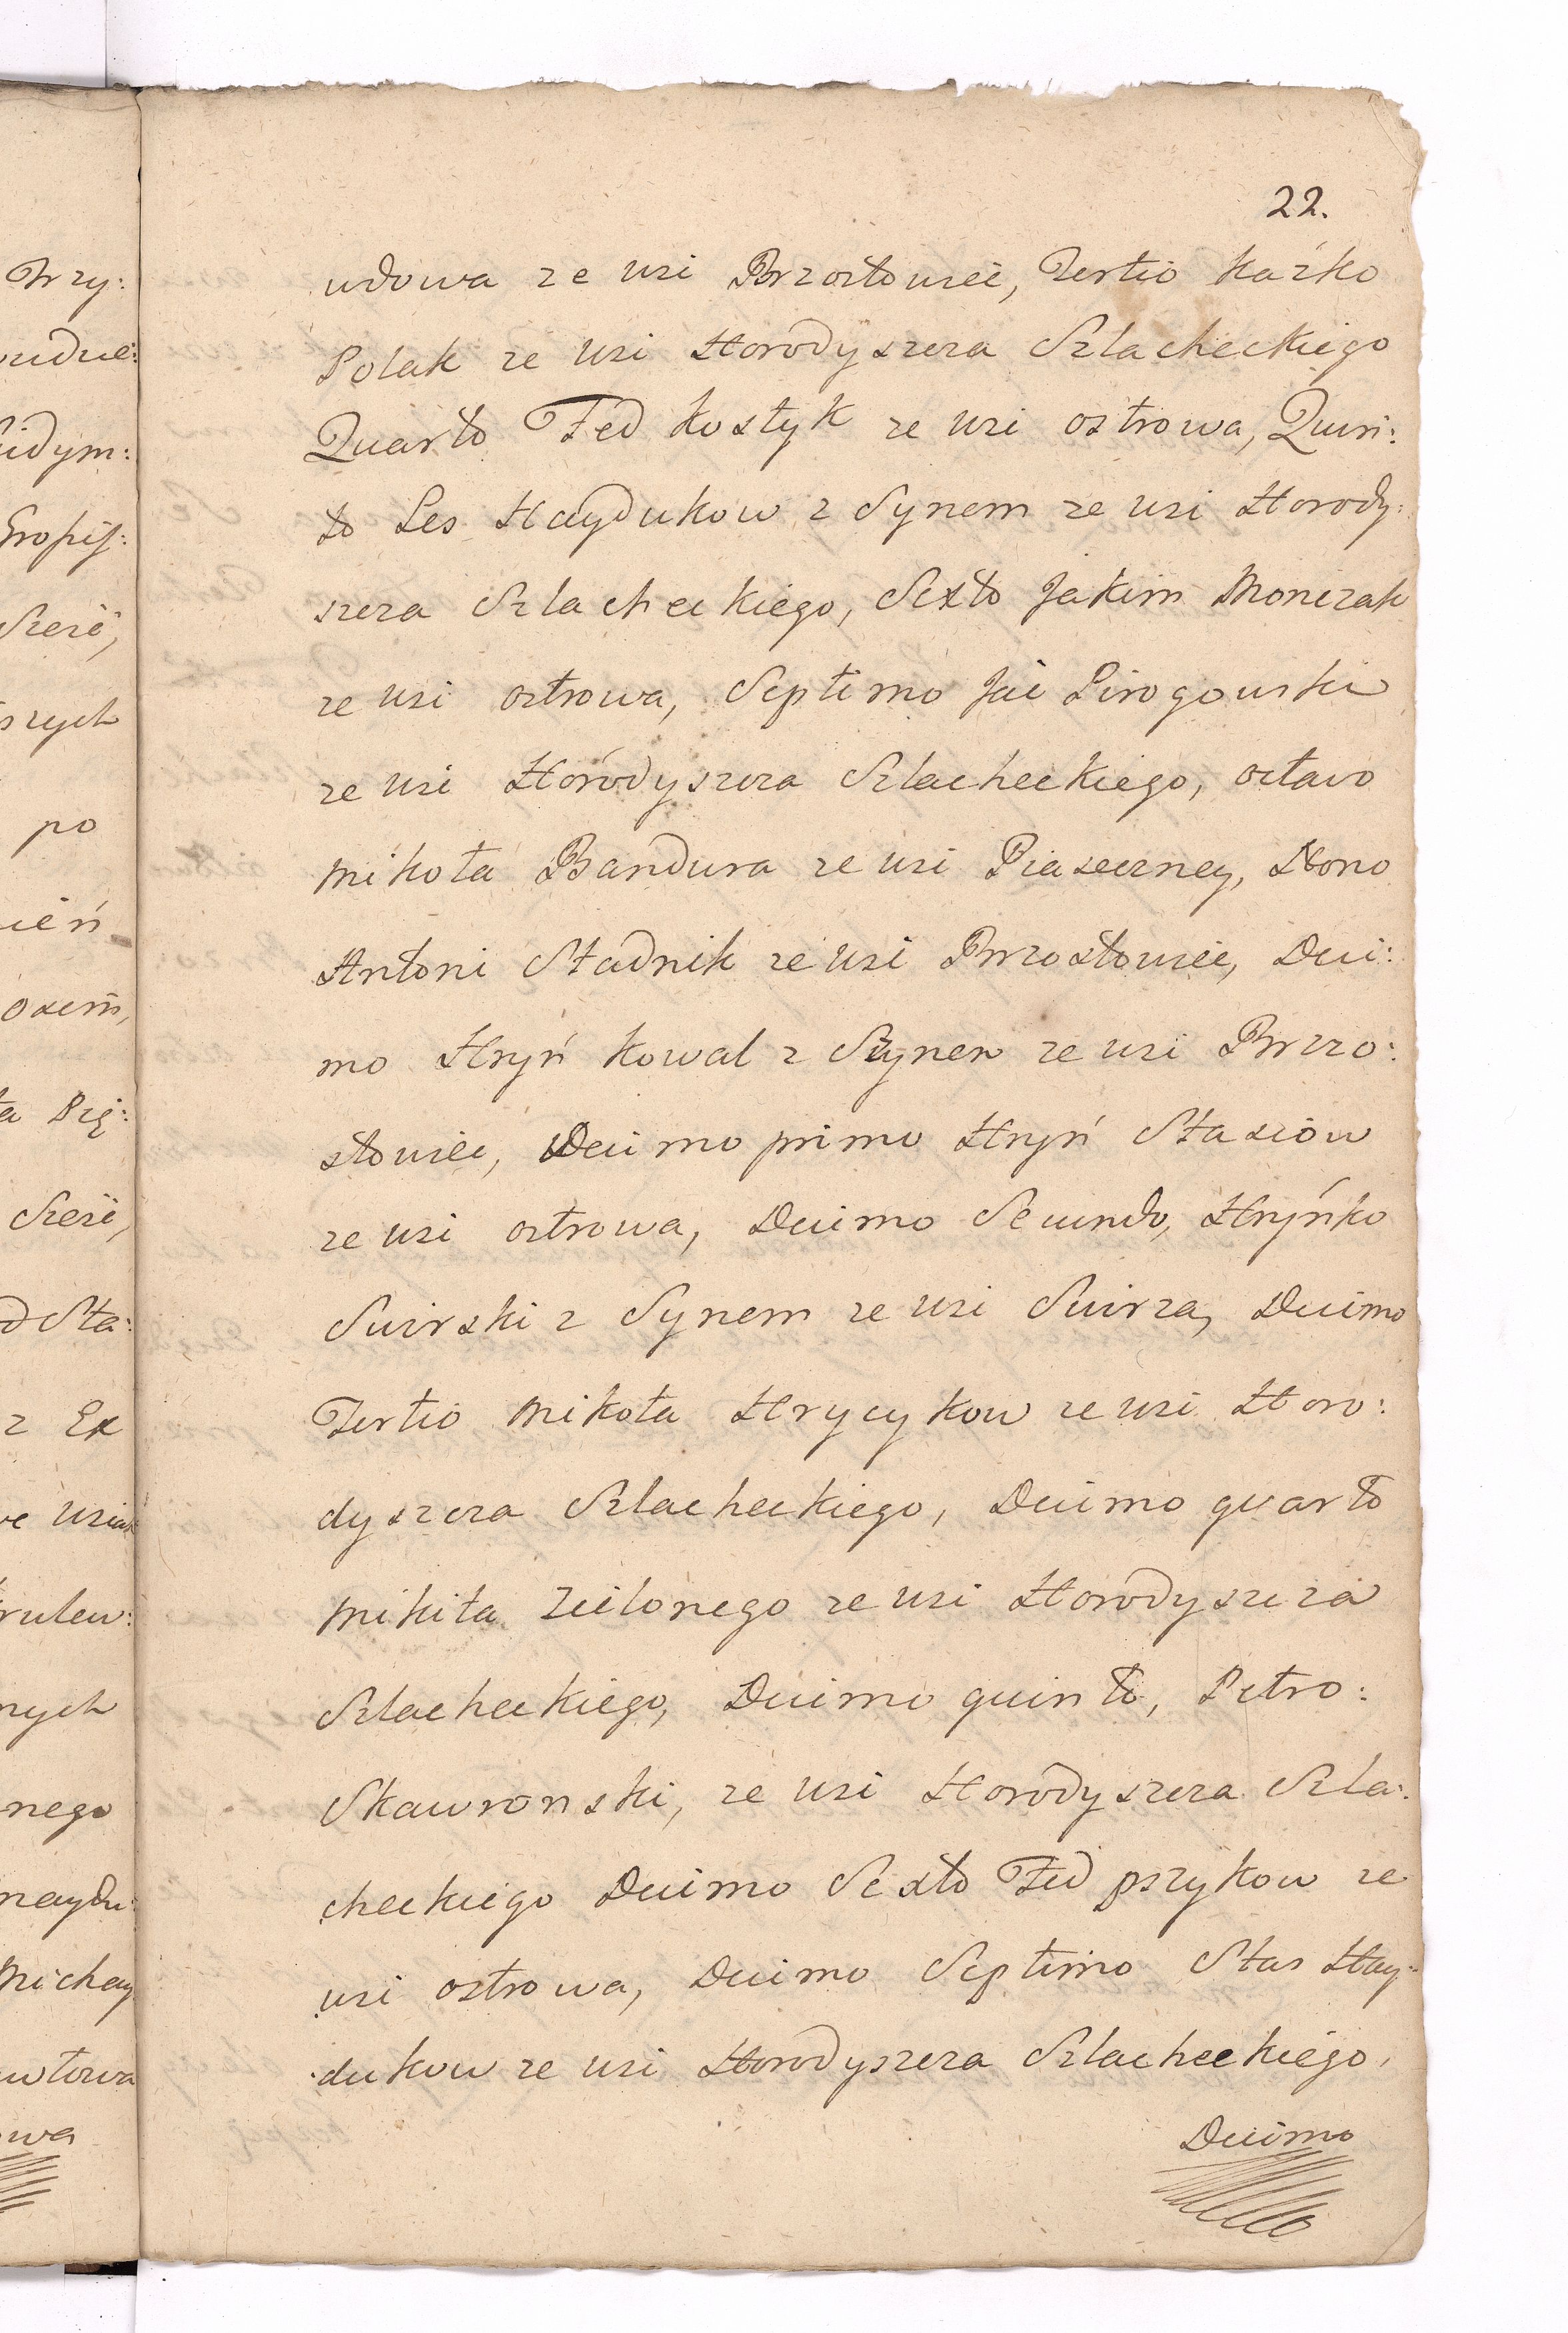 22.
wdowa ze wsi Brzostowiec, Tertio Kaźko
Polak ze wsi Horodyszcza Szlacheckiego
Quarto Fed Kostyk ze wsi ostrowa, Quin:
to Les Haydukow z Synem ze wsi Horody:
szcza Szlacheckiego, Sexto Jakim Monczak
ze wsi ostrowa, Septimo Jać Pirogowski
ze wsi Horodyszcza Szlacheckiego, octavo
Mikoła Bandura ze wsi Piaseczney, Nono
Antoni Stadnik ze wsi Brzostowiec, Deci:
mo Hryń Kowal z Synem ze wsi Brzo:
stowiec, Decimo primo Hryń Stasiow
ze wsi ostrowa, Decimo Secundo, Hryńko
Swirski z Synem ze wsi Swirza, Decimo
Tertio Mikoła Hrycykow ze wsi Horo:
dyszcza Szlacheckiego, Decimo quarto
Mikita Zielonego ze wsi Horodyszcza
Szlacheckiego, Decimo quinto, Petro:
Skawronski, ze wsi Horodyszcza Szla:
checkiego Decimo Sexto Fed pszykow ze
wsi ostrowa, Decimo Septimo Stas Hay:
dukow ze wsi Horodyszcza Szlacheckiego,
Decimo
po
szych
Szese,
z Ex
nych
nego
Michay